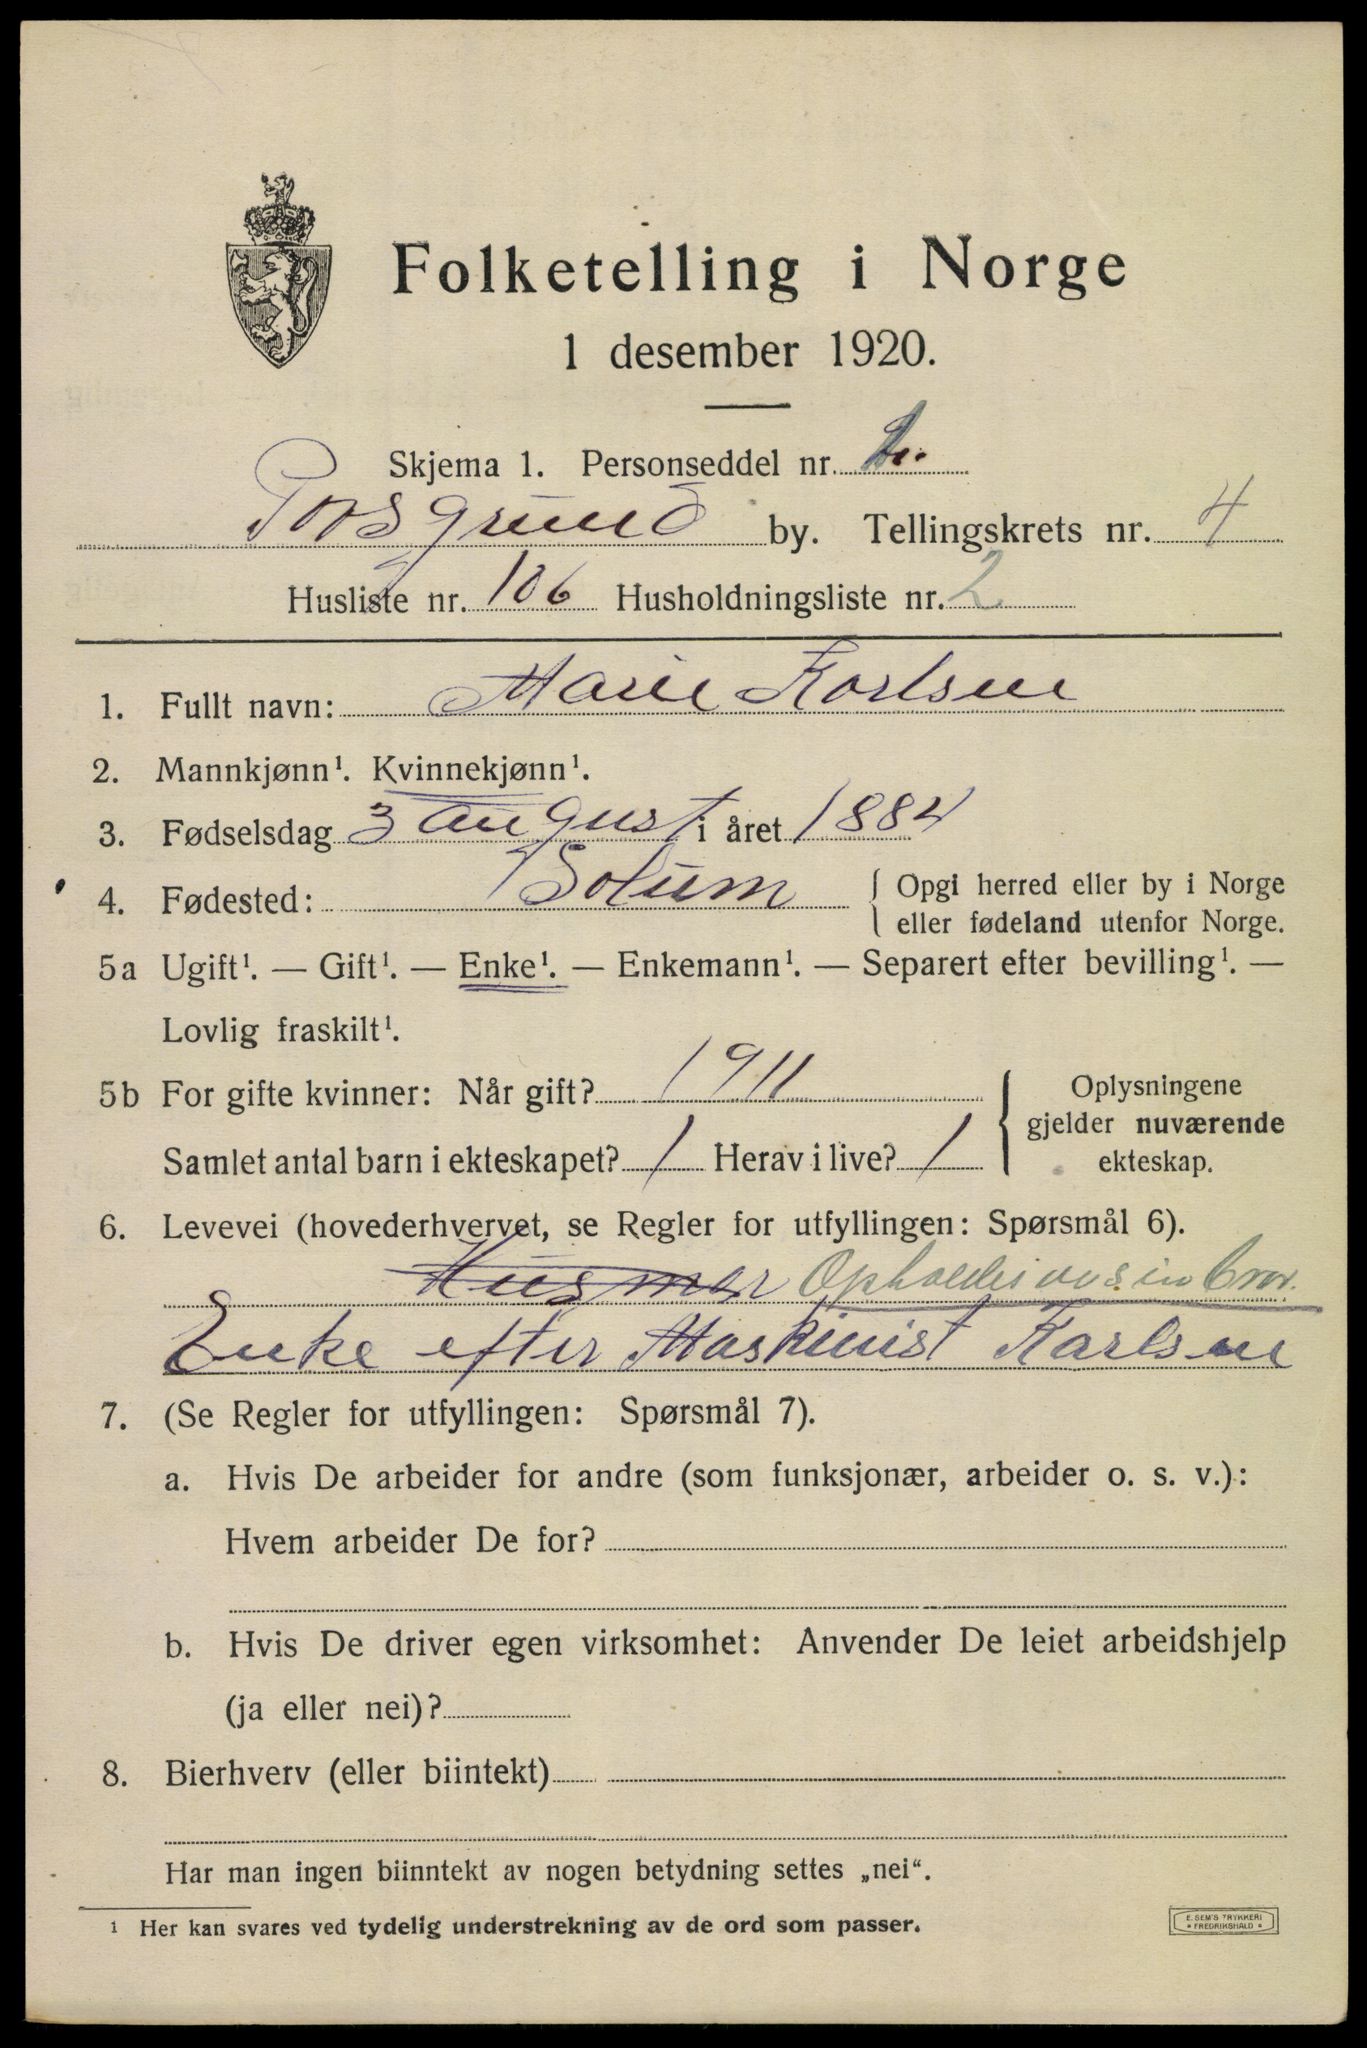 Folketelling i Norge
1 desember 1920.
Skjema 1. Personseddel nr.
Porsgrund by. Tellingskrets nr. 4
Husliste nr. 106 Husholdningsliste nr. 2
1. Fullt navn: Marie Karlsen
2. Mannkjønn¹. Kvinnekjønn¹.
3. Fødselsdag 3 august i året 1884
4. Fødested: Solum { Opgi herred eller by i Norge
eller fødeland utenfor Norge.
5a Ugift¹. — Gift¹. — Enke¹. — Enkemann¹. — Separert efter bevilling¹. —
Lovlig fraskilt¹.
5b For gifte kvinner: Når gift? 1911 { Oplysningene
gjelder nuværende
Samlet antal barn i ekteskapet? 1 Herav i live? 1 ekteskap.
6. Levevei (hovederhvervet, se Regler for utfyllingen: Spørsmål 6).
Husmor Opholdes hos
Enke efter Maskinist Karlsen
7. (Se Regler for utfyllingen: Spørsmål 7).
a. Hvis De arbeider for andre (som funksjonær, arbeider o. s. v.):
Hvem arbeider De for?
b. Hvis De driver egen virksomhet: Anvender De leiet arbeidshjelp
(ja eller nei)?
8. Bierhverv (eller biintekt)
Har man ingen biinntekt av nogen betydning settes „nei“.
¹ Her kan svares ved tydelig understrekning av de ord som passer.
E. SEM'S TRYKKERI
FREDRIKSHALD